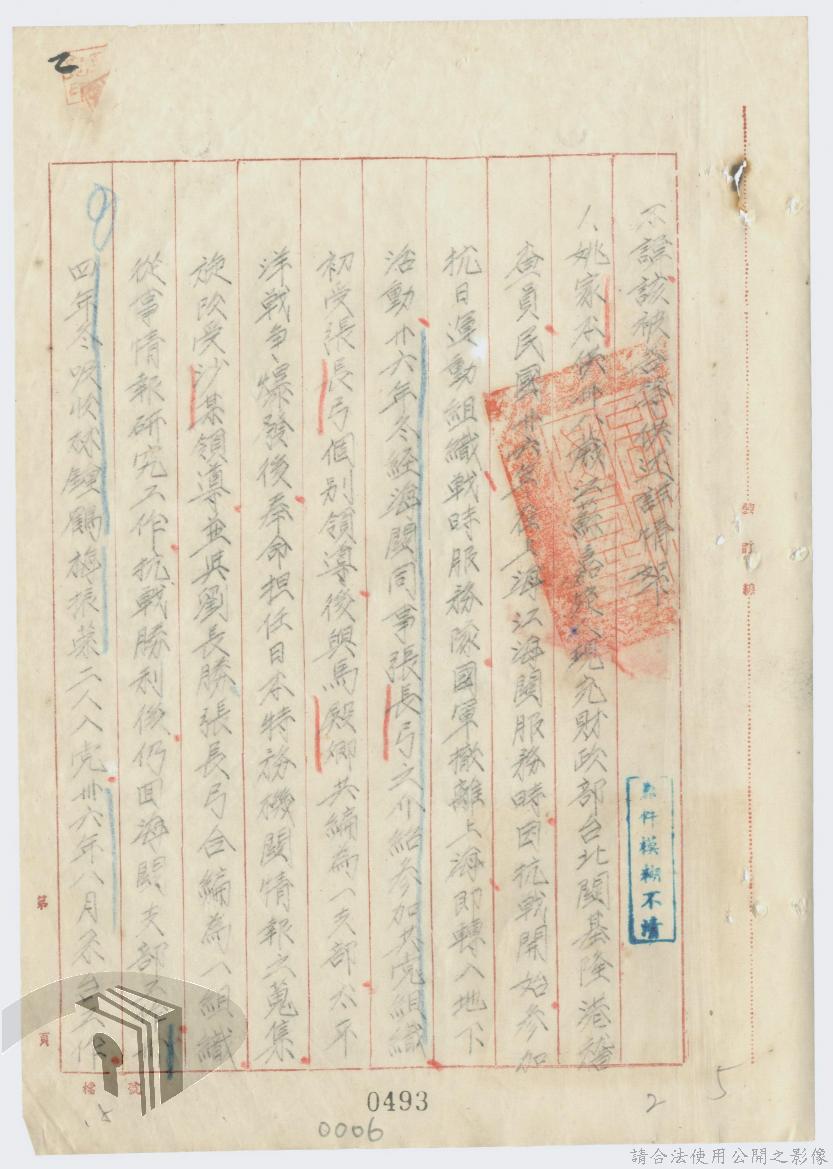 不諱該被告等供述詳情如下
人姚家本供卅八歲江蘇嘉定人現充財政部台北關基隆港
查員民國卅六年在上海江海關服務時因抗戰開始參加
抗日運動組織戰時服務隊國軍撤離上海即轉入地下
活動卅六年冬經海關同事張長弓之介紹參加共党組織
初受張長弓個別領導後與馬殿卿共編為一支部太平
洋戰爭爆發後奉命担任日本特務機關情報之蒐集
旋改受沙某領導並與劉長勝張長弓合編為一組織
從事情報研究工作抗戰勝利後仍回海關支部工作
四年冬吸收 二人入党卅六年八月來台工作
乙
案件模糊不清
裝訂線
第 頁
檔號
0493
0006
2
5
15
請合法使用公開之影像